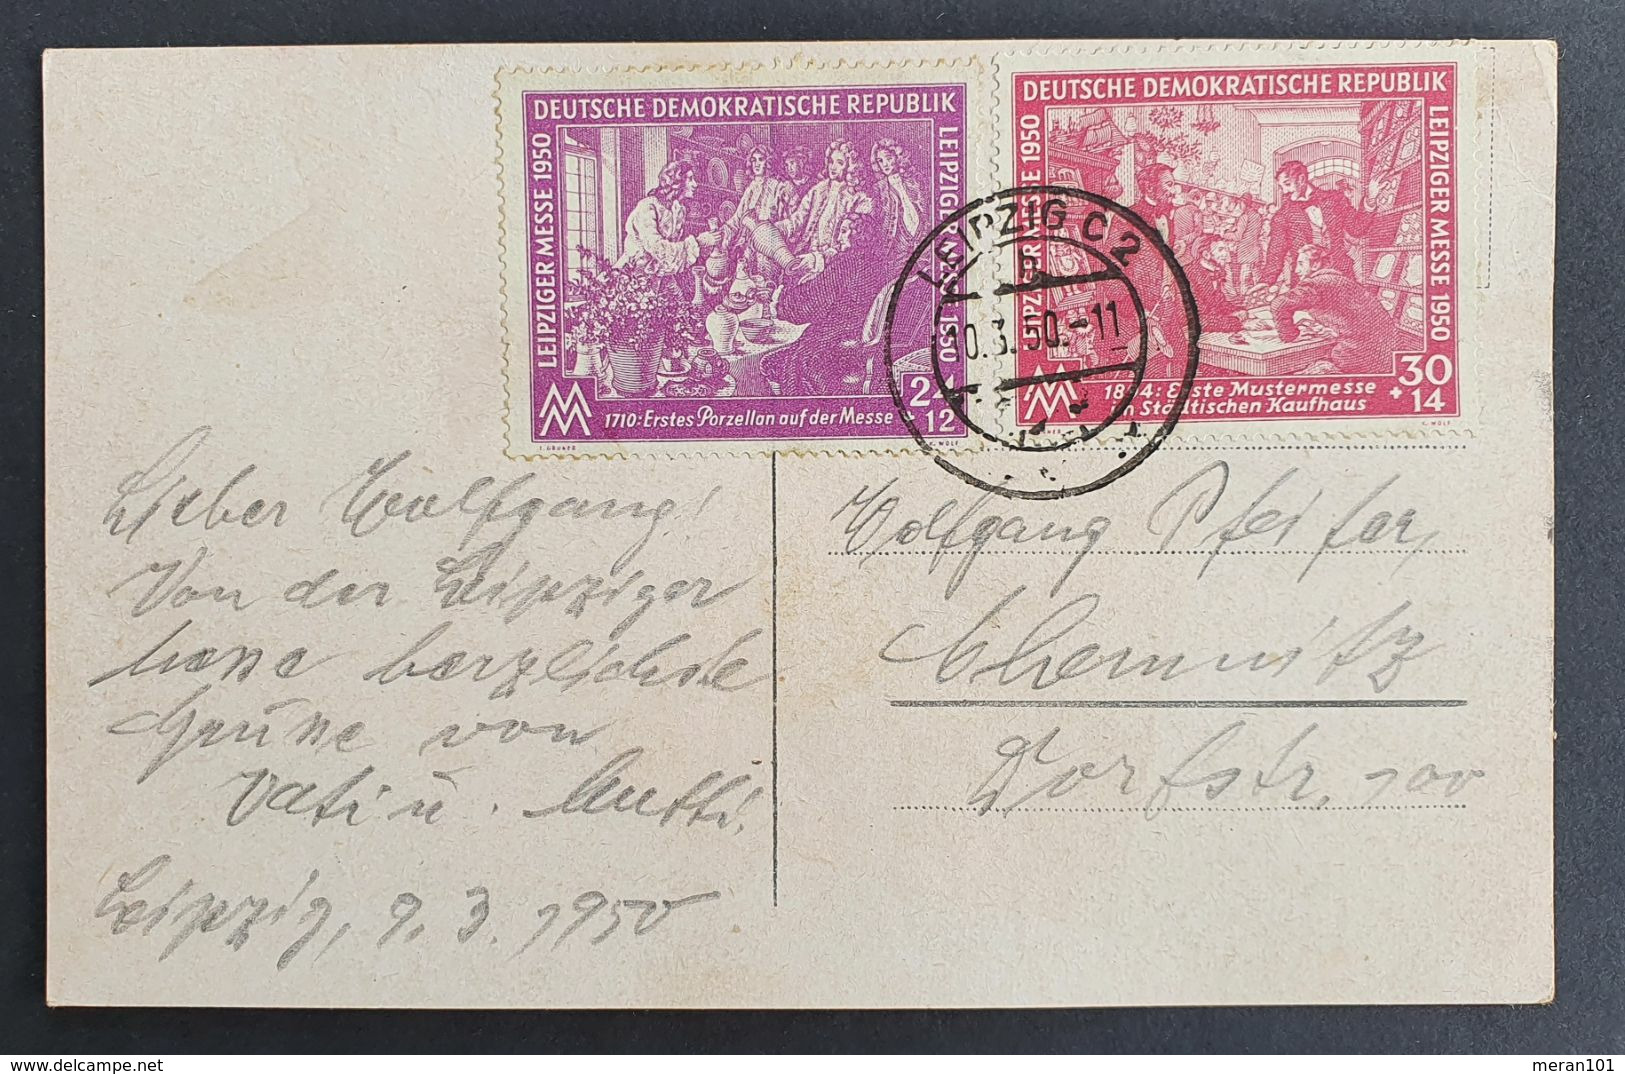 DEUTSCHE DEMOKRATISCHE REPUBLIK
LEIPZIGER MESSE 1950
LEIPZIGER MESSE 1950
24
+12
1710: Erstes Porzellan auf der Messe
DEUTSCHE DEMOKRATISCHE REPUBLIK
LEIPZIGER MESSE 1950
LEIPZIGER MESSE 1950
30
+14
1894: Erste Mustermesse
im Städtischen Kaufhaus
LEIPZIG C 2
10.3.50.-11
Lieber Wolfgang!
Von der Leipziger
Messe herzlichste
Grüsse von
Vati u. Mutti.
Leipzig, 9.3.1950
Wolfgang Pfeifer,
Chemnitz
Dorfstr. 100
DELCAMPE.net
meran101